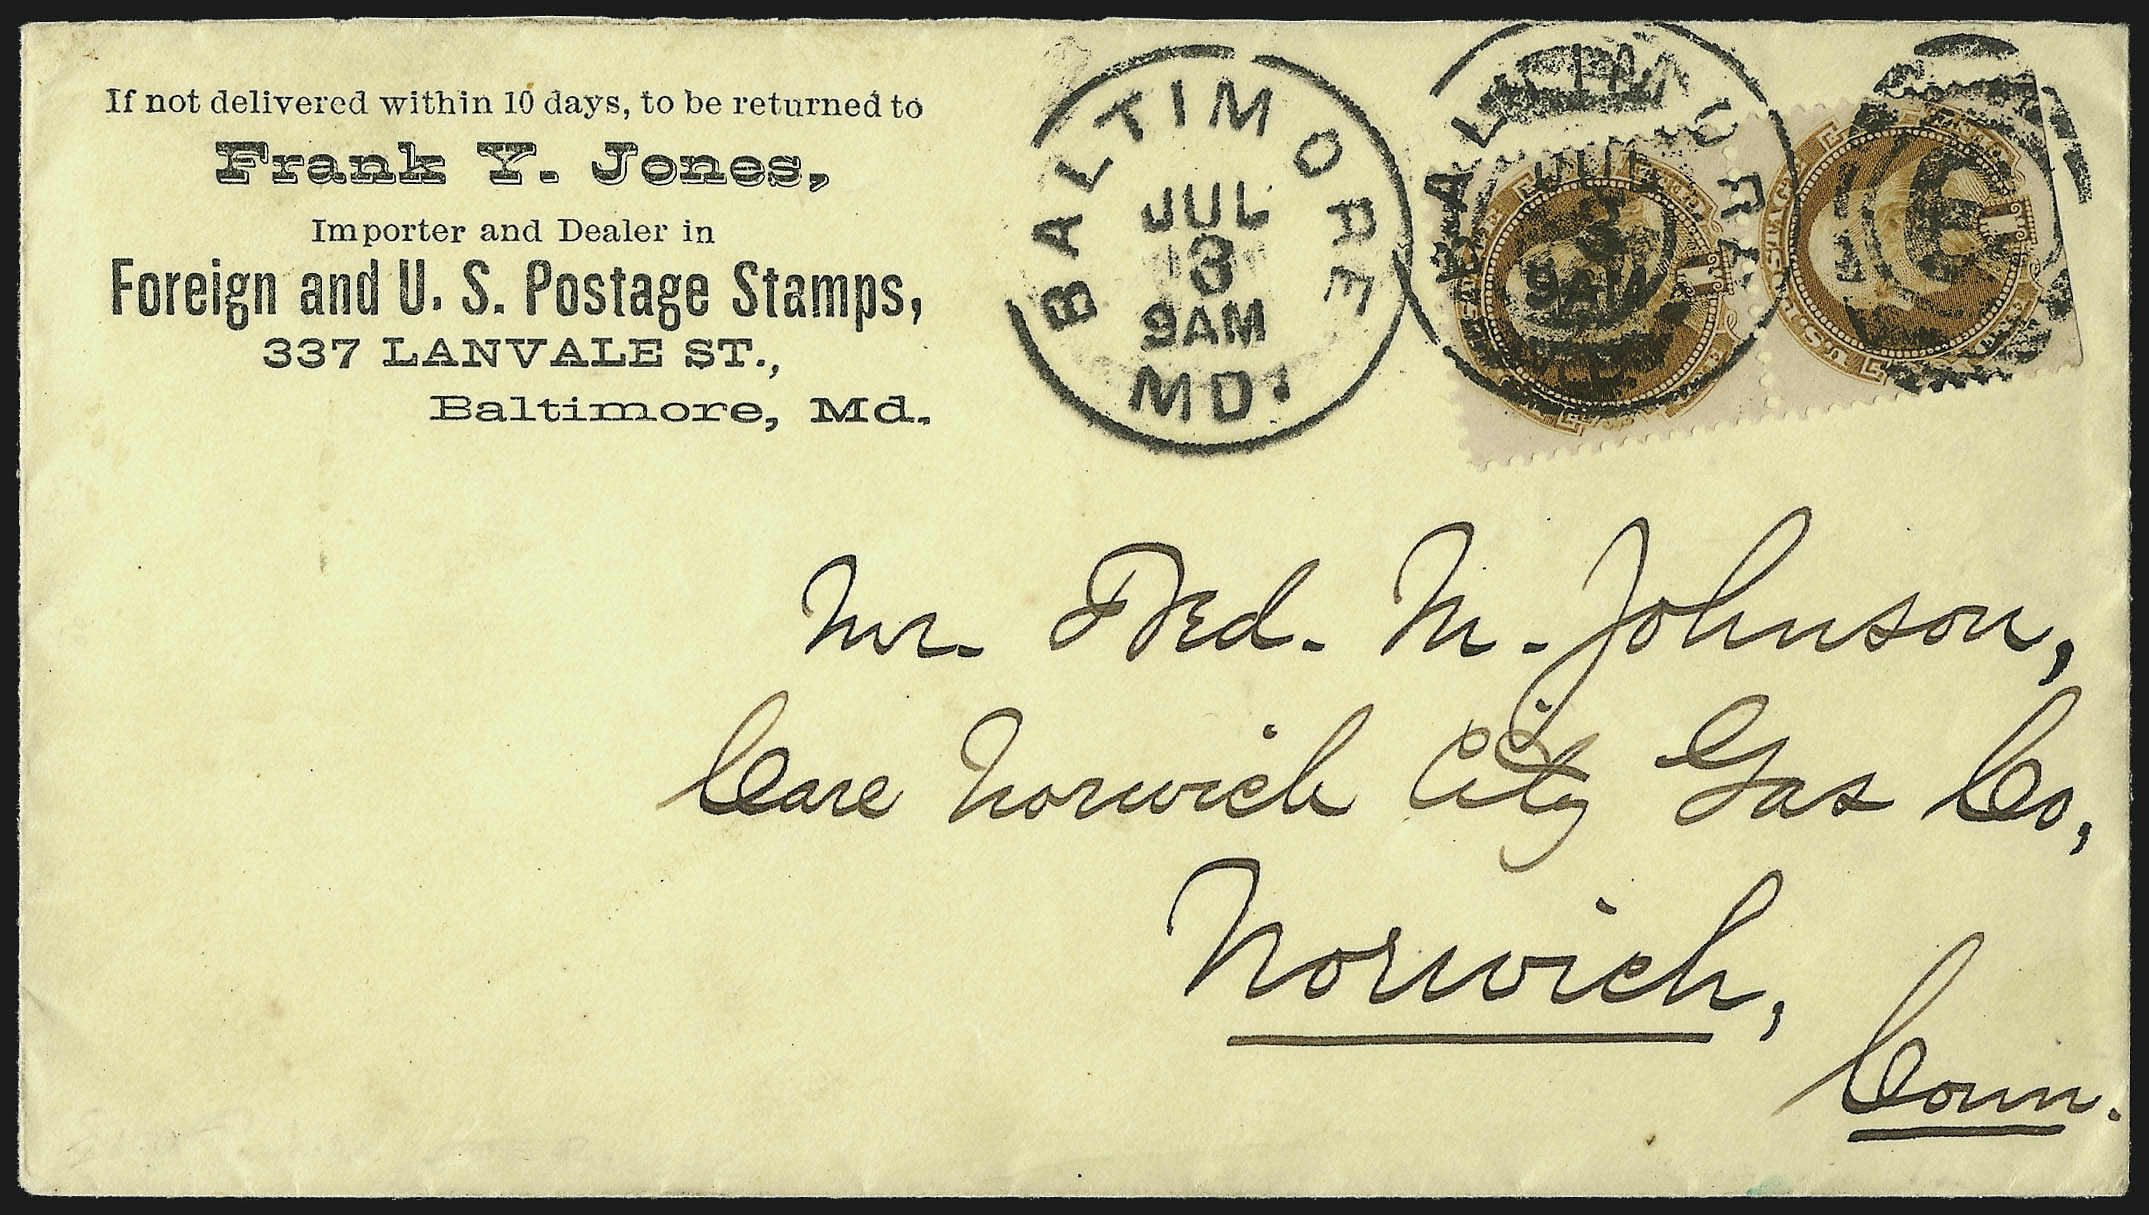 If not delivered within 10 days, to be returned to
Frank Y. Jones,
Importer and Dealer in
Foreign and U. S. Postage Stamps,
337 LANVALE ST.,
Baltimore, Md.
BALTIMORE
JUL
3
9AM
MD.
BALTIMORE
JUL
3
9AM
MD.
U.S. POSTAGE
Mr. Fred. M. Johnson,
Care Norwich City Gas Co,
Norwich,
Conn.